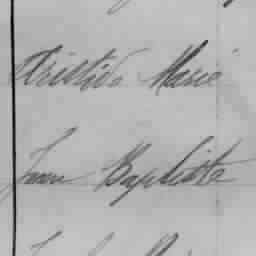 Aristide Marie
Jean Baptiste